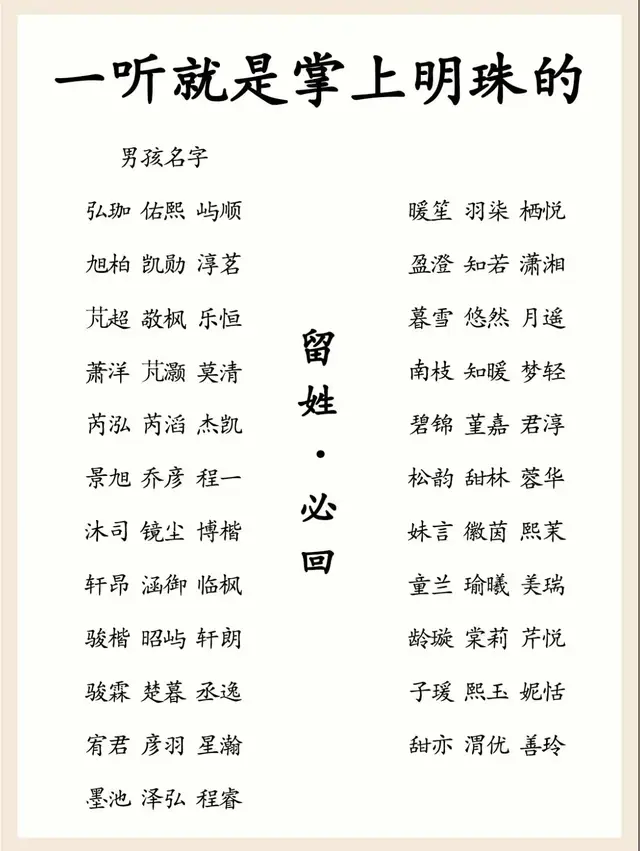 一听就是掌上明珠的
男孩名字
弘珈 佑熙 屿顺
旭柏 凯勋 淳茗
芃超 敬枫 乐恒
萧洋 芃灏 莫清
芮泓 芮滔 杰凯
景旭 乔彦 程一
沐司 镜尘 博楷
轩昂 涵御 临枫
骏楷 昭屿 轩朗
骏霖 楚暮 丞逸
宥君 彦羽 星瀚
墨池 泽弘 程睿
留姓·必回
暖笙 羽柒 栖悦
盈澄 知若 潇湘
暮雪 悠然 月遥
南枝 知暖 梦轻
碧锦 堇嘉 君淳
松韵 甜林 蓉华
妹言 徽茵 熙茉
童兰 瑜曦 美瑞
龄璇 棠莉 芹悦
子瑗 熙玉 妮恬
甜亦 渭优 善玲